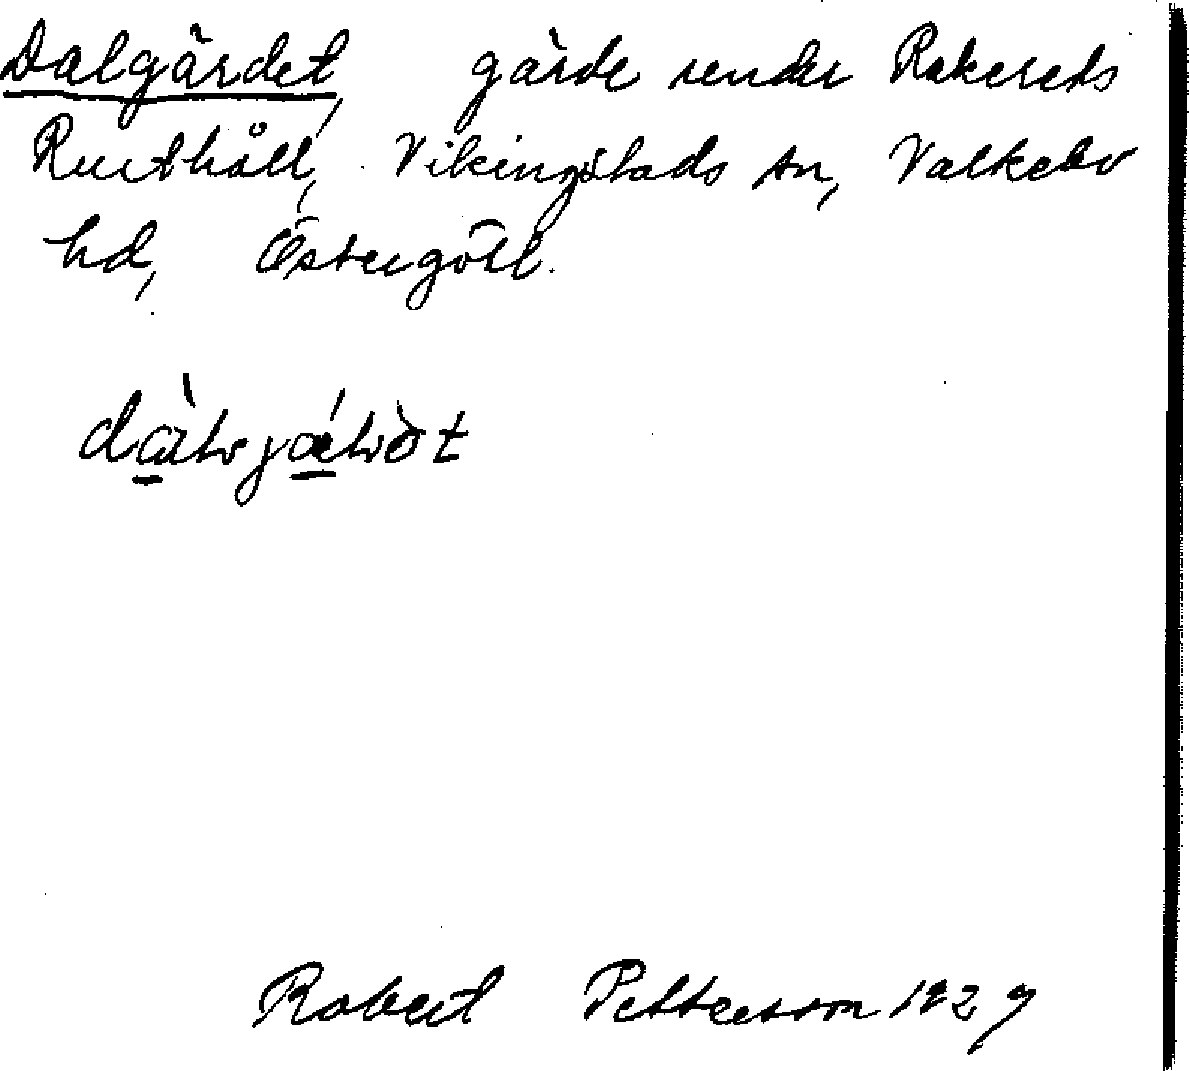 Dalgärdet, gärde under Rakereds
Rusthåll, Vikingstads sn, Valkebo
hd, Östergötl.
Robert Pettersson 1927